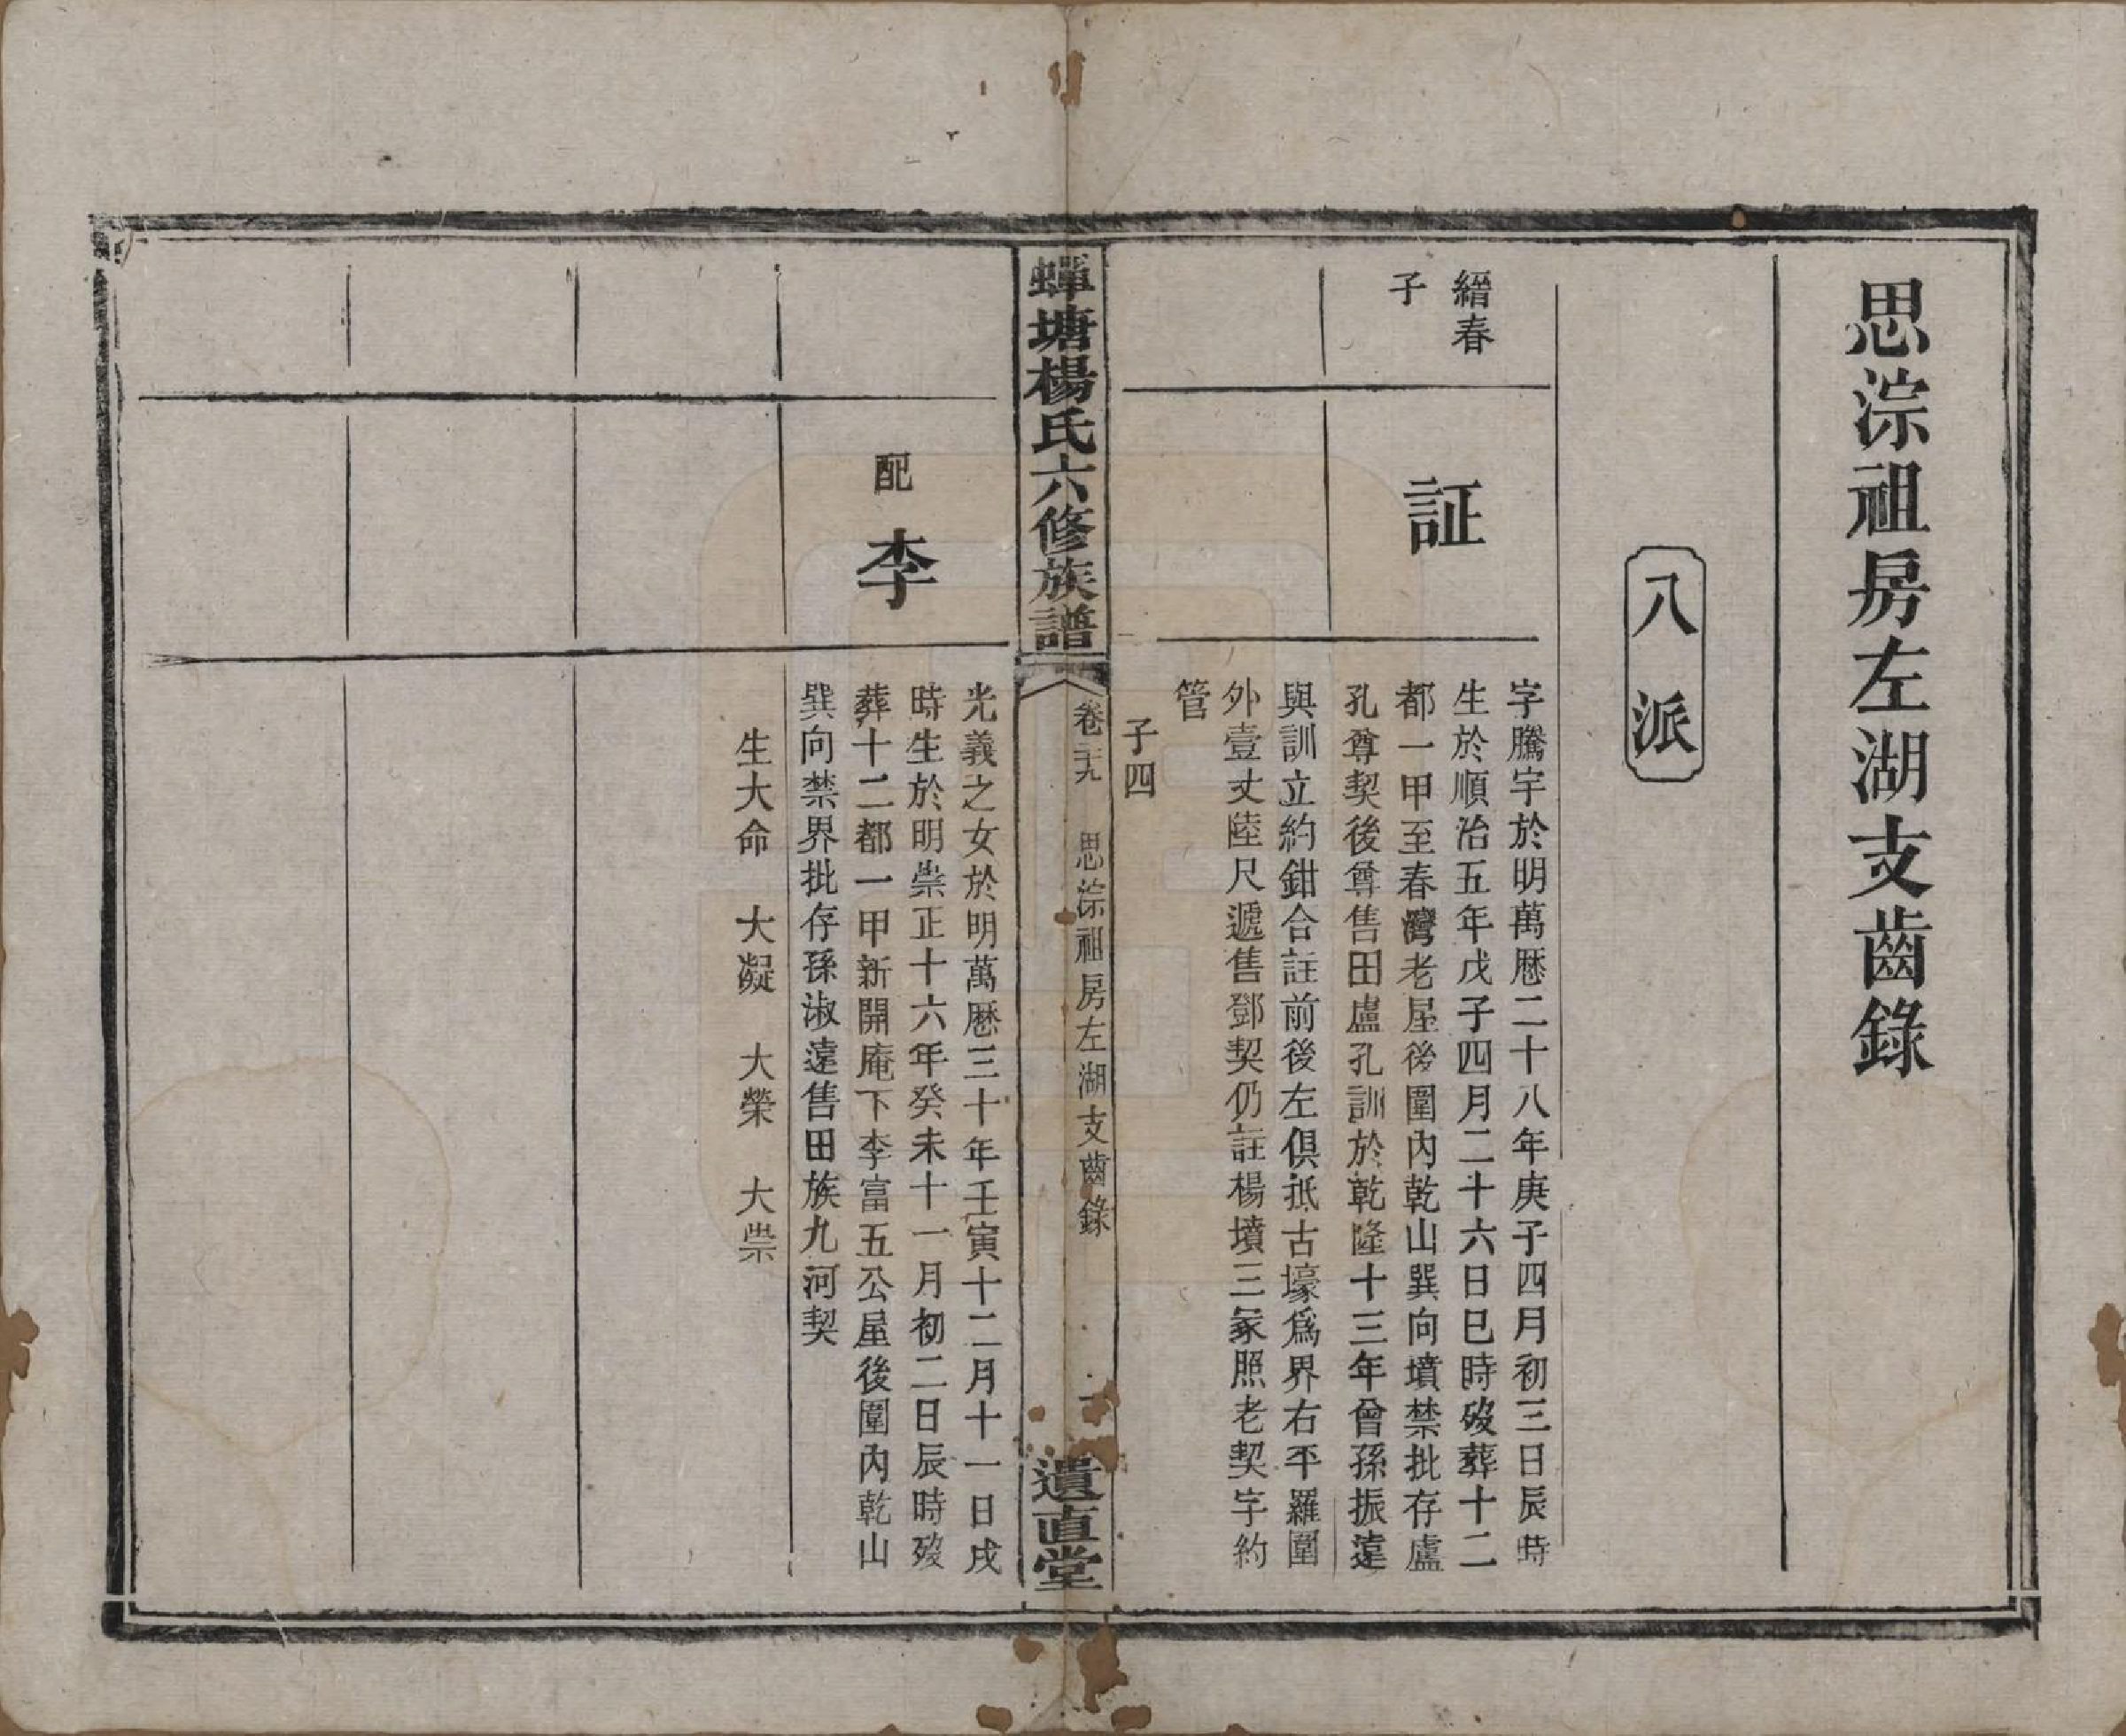 思淙祖房左湖支齒錄
八派
縉春
子
証
字騰宇於明萬厯二十八年庚子四月初三日辰時
生於順治五年戊子四月二十六日巳時歿葬十二
都一甲至春灣老屋後圍內乾山巽向墳禁批存盧
孔尊契後尊售田盧孔訓於乾隆十三年曾孫振遠
與訓立約鉗合註前後左俱抵古壕爲界右平羅圍
外壹丈陸尺遞售鄧契仍註楊墳三冢照老契字約
管
子四
蟬塘楊氏六修族譜
卷二十九
思淙祖房左湖支齒錄
一
遺直堂
配
李
光義之女於明萬厯三十年壬寅十二月十一日戌
時生於明崇正十六年癸未十一月初二日辰時歿
葬十二都一甲新開庵下李富五公屋後圍內乾山
巽向禁界批存孫淑遠售田族九河契
生大命 大凝 大榮 大祟